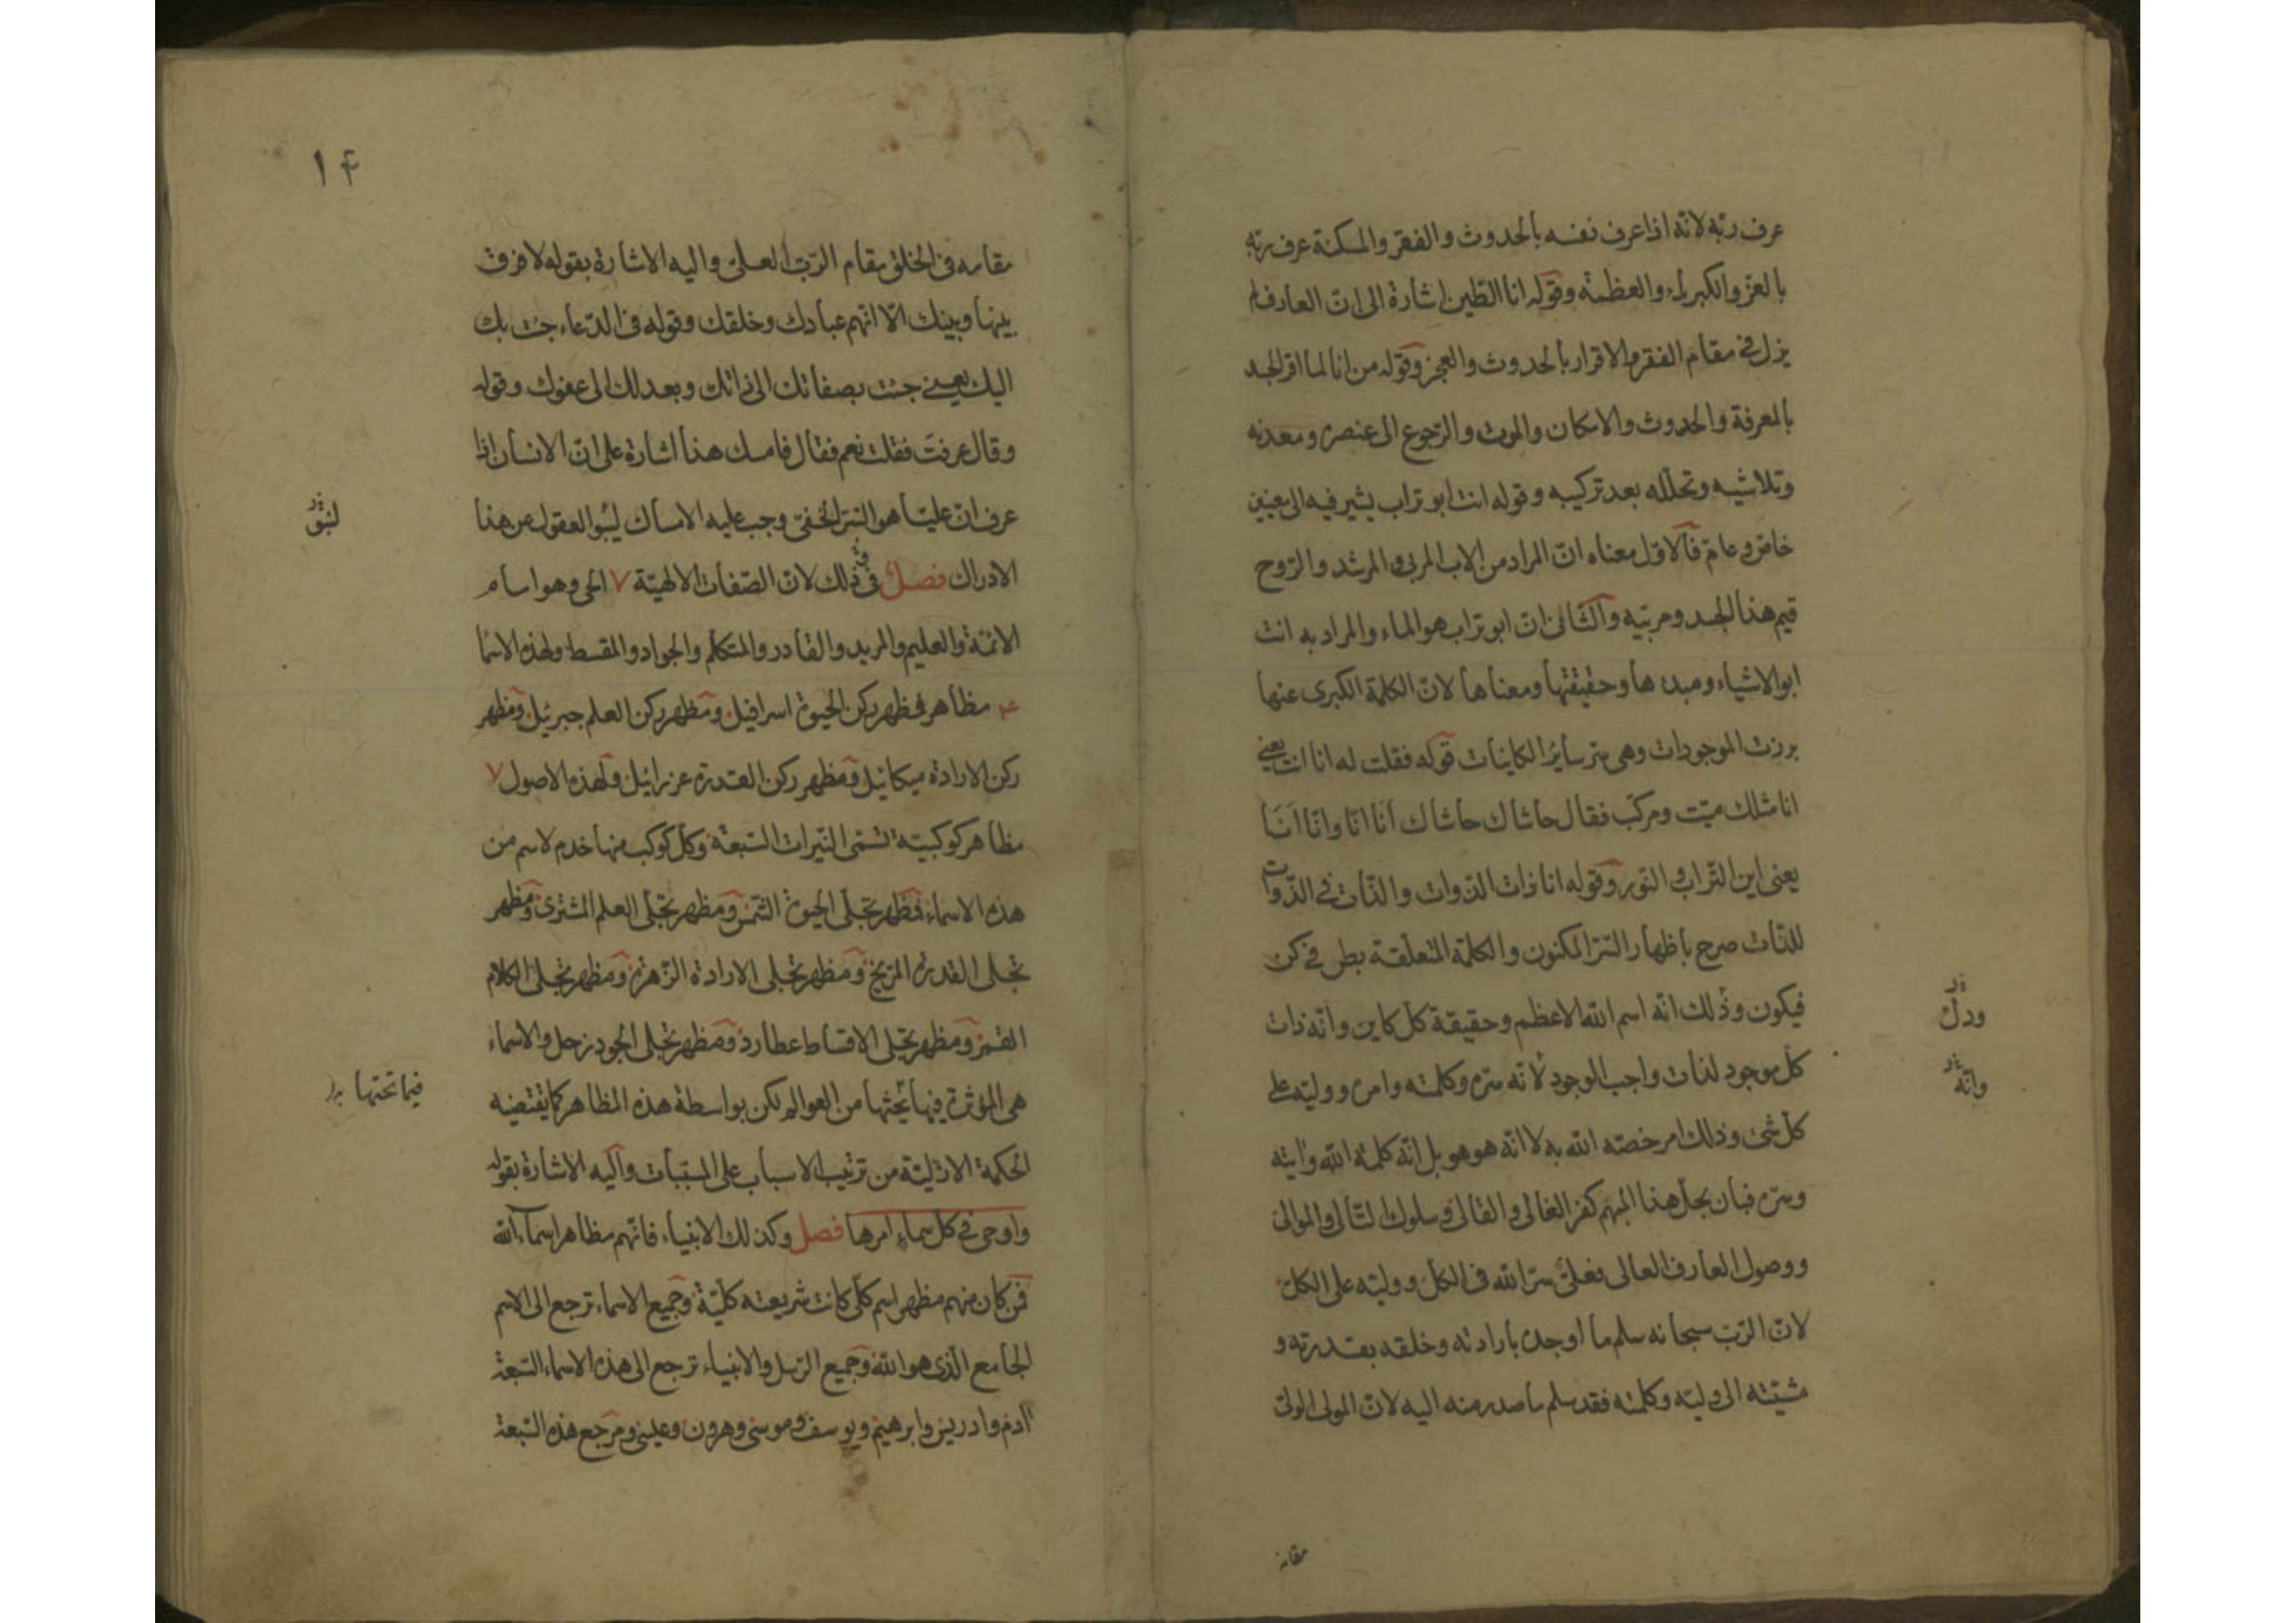 عرف ربّه لانّه اذا عرف نفسه بالحدوث و الفقر و المسكنة عرف ربّه
بالعزّ و الكبرياء و العظمة وقوله انا الطين اشارة الى انّ العارف لم
يزل في مقام الفقر و الاقرار بالحدوث و العجز وقوله من انا لما اقرّ الجسد
بالمعرفة والحدوث والامكان والموت والرّجوع الى عنصره ومعدنه
وتلاشيه وتحلّله بعد تركيبه وقوله انت ابو تراب يشير فيه الى معنيين
خاصّ وعامّ فالاوّل معناه انّ المراد من الاب المربى و المرشد والرّوح
قيم هذا الجسد ومربّيه والثّانى انّ ابو تراب هو الماء والمراد به انت
ابو الاشياء ومبدءها وحقيقتها ومعناها لانّ الكلمة الكبرى عنها
برزت الموجودات وهى سرّ سائر الكاينات قوله فقلت له انا انت يعني
انا مثلك ميّت ومركّب فقال حاشاك حاشاك أنا انا وانا اَنَا
يعنى اين التّراب و النّور وقوله انا ذات الذّوات والذّات في الذّوات
للذّات صرح باظهار السّرّ المكنون والكلمة المتعلّقة بطرفي كن
فيكون وذلك انّه اسم الله الاعظم وحقيقة كلّ كاين وانّه ذات
كلّ موجود لذات واجب الوجود لانّه سرّه وكلمته وامره ووليّه على
كلّ شئ وذلك امر خصّه الله به لا انّه هو هو بل انّه كلمة الله وايته
وسرّه فبان بحلّ هذا المبهم كفر الغالى و القالى و سلوك التّالى و الموالى
ووصول العارف العالى فعلىّ سرّ الله فى الكلّ و وليّه على الكلّ
لانّ الرّبّ سبحانه سلم ما اوجده بارادته وخلقه بقدرته و
مشيّته الى وليّه وكلمته فقد سلم ما صدر منه اليه لانّ المولى الولىّ
ودلّ
وانّه
مقامه
۱۴
مقامه فى الخلق مقام الرّبّ العلىّ واليه الاشارة بقوله لا فرق
بينها وبينك الّا انّهم عبادك وخلقك وقوله فى الدّعاء جئت بك
اليك يعني جئت بصفاتك الى ذاتك وبعدلك الى عفوك وقوله
وقال عرفتَ فقلت نعم فقال فامسك هذا اشارة على انّ الانسان اذا
عرف انّ عليّا هو السّرّ الخفىّ وجب عليه الامساك العقول عن هذا
الادراك فصل في ذلك لانّ الصّفات الالهيّة ۷ الحى وهو امام
الائمّة والعليم والمريد والقادر والمتكلّم والجواد والمقسط ولهذه الاسما
۴ مظاهر فمظهر ركن الحيوة اسرافيل ومظهر ركن العلم جبرئيل ومظهر
ركن الارادة ميكائيل ومظهر ركن القدرة عزرائيل ولهذه الاصول ۷
مظاهر كوكبيّة تسمّى النّيرات السّبعة وكلّ كوكب منها خدم لاسم من
هذه الاسماء فمظهر تجلّى الحيوة الشّمس ومظهر تجلّى العلم المشترى ومظهر
تجلى القدرة المرّيخ ومظهر تجلى الارادة الزّهرة ومظهر تجلى الكلام
القمر ومظهر تجلى الاقساط عطارد ومظهر تجلى الجود زحل والاسماء
هى المؤثرة فيها تحتها من العوالم لكن بواسطة هذه المظاهر كما يقتضيه
الحكمة الازليّة من ترتيب الاسباب على المسبّبات واليه الاشارة بقوله
واوحى في كل سماءٍ امرها فصل وكذلك الانبياء فانّهم مظاهر اسماء الله
فمن كان منهم مظهر اسم كلّى كانت شريعته كلّيّة وجميع الاسماء ترجع الى الاسم
الجامع الّذى هو الله وجميع الرّسل والانبياء ترجع الى هذه الاسماء السّبعة
ادم وادريس وابرهيم ويوسف وموسى وهرون وعيسى ومرجع هذه السّبعة
فيما تحتها